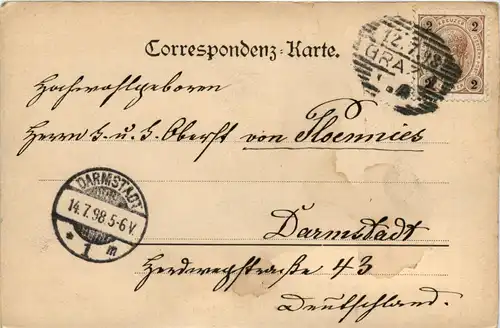 Correspondenz-Karte.
12.7.98
GRAZ
2 2
Hochwohlgeboren
Herrn k. u. k. Oberst von Ploennies
DARMSTADT
14.7.98 5-6 V.
* 1 m
Darmstadt
Herdwegstraße 43
Deutschland.